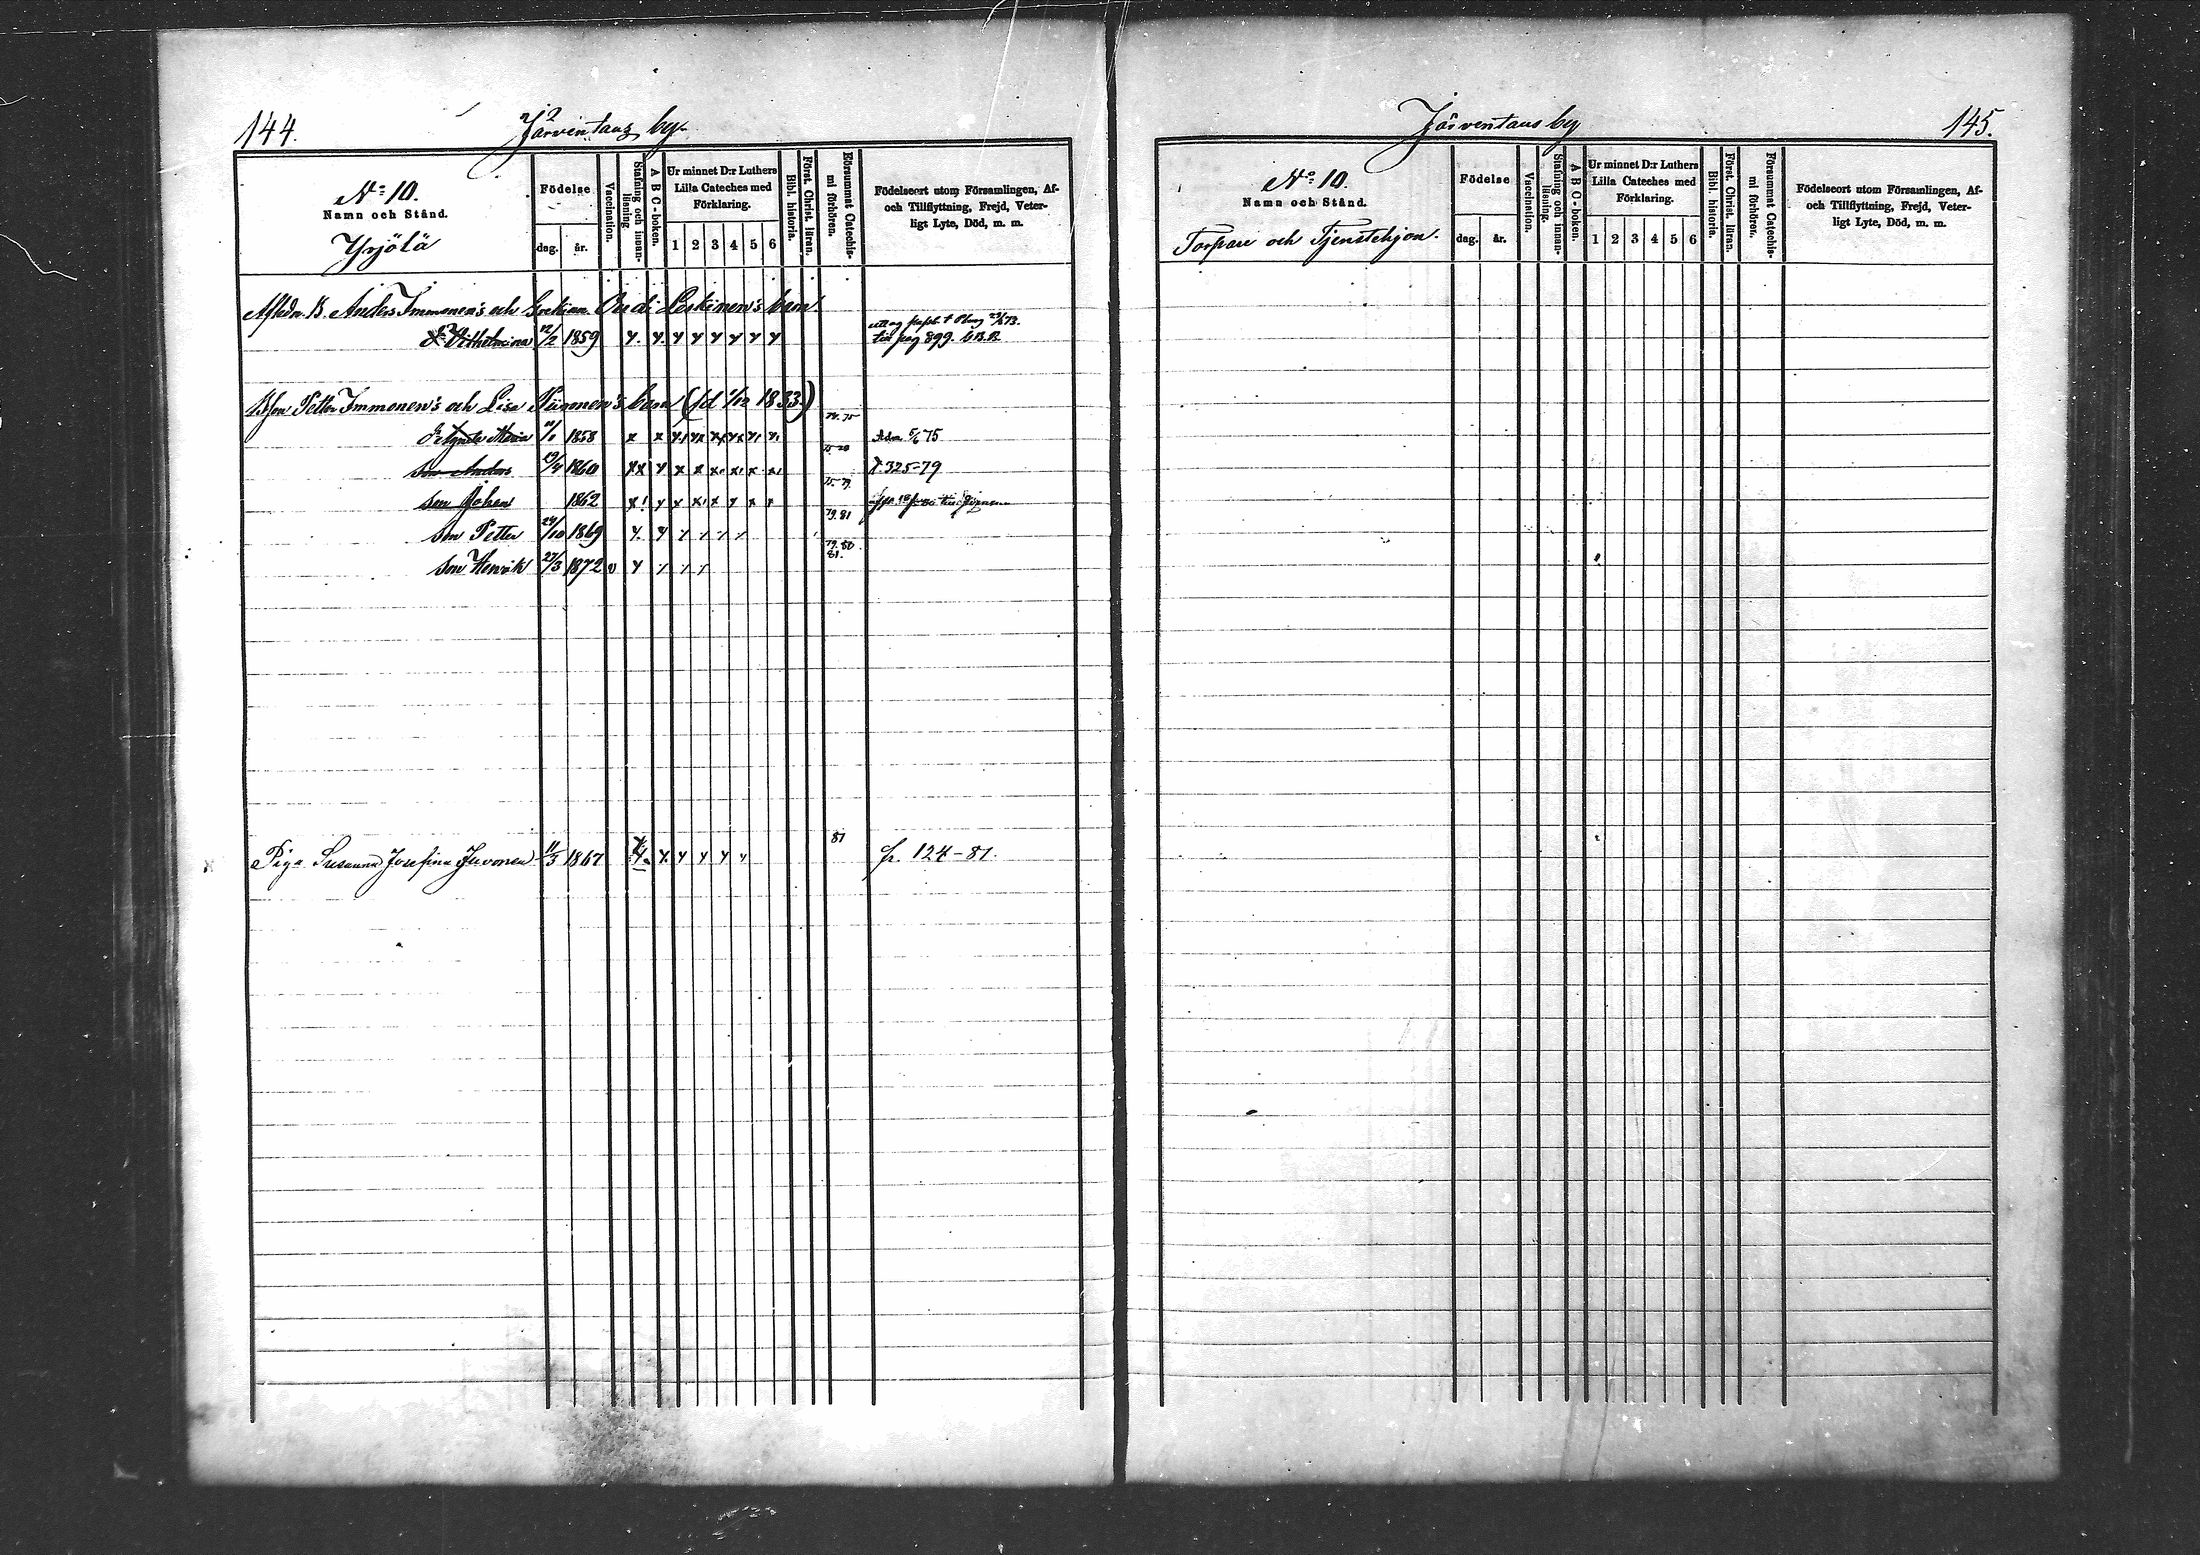 144.
Järventaus by.
No 10.
Namn och Stånd.
Yrjölä
Födelse
dag. år.
Vaccination.
Stafning och innan-läsning.
A B C-boken.
Ur minnet D:r Luthers Lilla Cateches med Förklaring.
1 2 3 4 5 6
Bibl. historia.
Först. Christ. läran.
Försummat Catechis-mi förhören.
Födelseort utom Församlingen, Af- och Tillflyttning, Frejd, Veter- ligt Lyte, Död, m. m.
Anders Immonen's och Leskinen's barn.
Vilhelmina 12/2 1859 till pag 899.
Petter Immonen's och Lisa barn (1833)
74.75
Maria 1858 Adm. 5/6 75
son Anders 19/4 1860 325-79
75.79.
son Johan 1862
79.81
son Petter 24/10 1869
79.80
81.
son Henrik 27/3 1872 v
81
Piga Susanna Josefina Juvonen 11/3 1867 fr. 124-81.
Järventaus by
145.
No 10.
Namn och Stånd.
Torpare och Tjenstehjon.
Födelse
dag. år.
Vaccination.
Stafning och innan-läsning.
A B C-boken.
Ur minnet D:r Luthers Lilla Cateches med Förklaring.
1 2 3 4 5 6
Bibl. historia.
Först. Christ. läran.
Försummat Catechis-mi förhören.
Födelseort utom Församlingen, Af- och Tillflyttning, Frejd, Veter- ligt Lyte, Död, m. m.